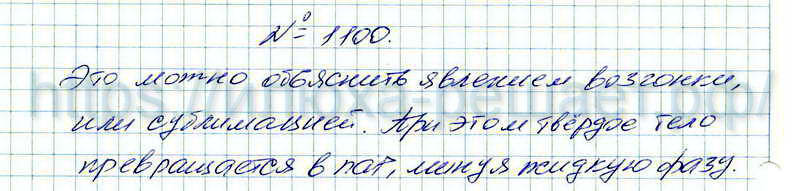 № 1100.
Это можно объяснить явлением возгонки,
или сублимацией. При этом твёрдое тело
превращается в пар, минуя жидкую фазу.